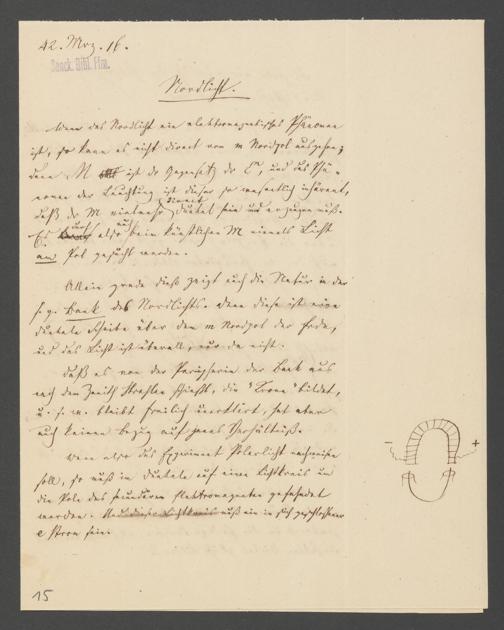 42. Mrz. 16.
Senck. Bibl. Ffm.
Nordlicht.
Wenn das Nordlicht ein elektromagnetisches Phänomen
ist, so kann es nicht direct vom m Nordpol ausgehen;
denn M ist der Gegensatz der E, und das Phä-
nomen der Leuchtung ist dieser so wesentlich inhärent,
daß der M vielmehr Dunkel sein und erzeugen muß.
Es also beim künstlichen M niemals Licht
am Pol gesucht werden.
Allein grade dieß zeigt auch die Natur in der
s. g. Bank des Nordlichts. denn diese ist eine
dunkele Scheibe über dem m Nordpol der Erde,
und das Licht ist überall, nur da nicht.
Daß es von der Peripherie der Bank aus
nach dem Zenith Strahlen schießt, die "Krone" bildet,
u. s. w. bleibt freilich unerklärt, hat aber
auch keinen Bezug auf jenes Verhältniß.
Wenn also das Experiment Polarlicht nachweisen
soll, so muß im Dunkele auf einen Lichtkreis um
die Pole des Elektromagneten gefahndet
werden. muß ein in sich geschlossener
e Strom sein.
- +
15